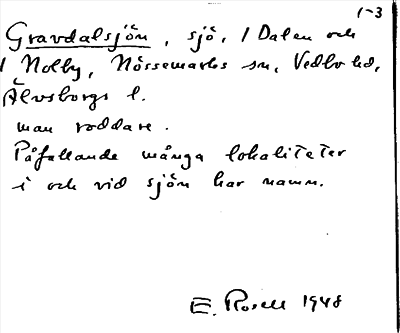 1-3
Gravdalsjön, sjö, / Dalen och
/ Nolby, Nössemarks sn, Vedbo hd,
Älvsborgs l.
man roddare.
Påfallande många lokaliteter
i och vid sjön har namn.
E. Rosell 1948